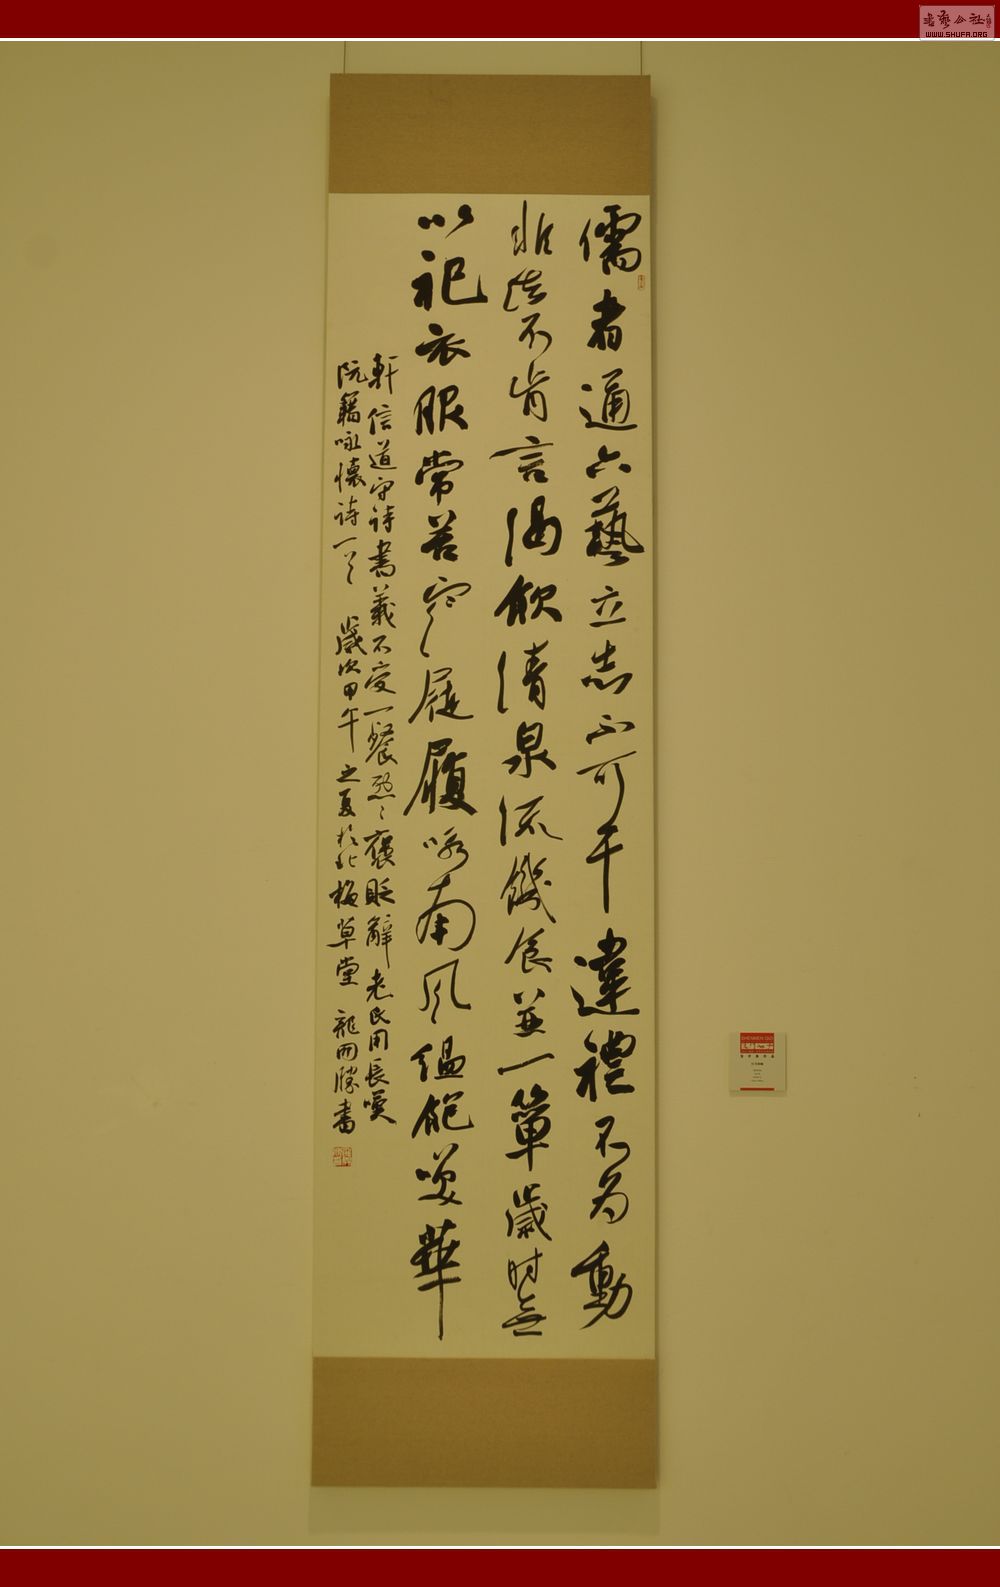 儒者通六藝立志不可干違禮不為動
非法不肯言渴飲清泉流饑食並一簞歲時無
以祀衣服常苦寒屣履咏南風縕袍笑華
軒信道守詩書義不受一餐烈〻褒貶辭老氏用長嘆
阮籍咏懷詩一首 歲次甲午之夏於北
草堂
書
WWW.SHUFA.ORG